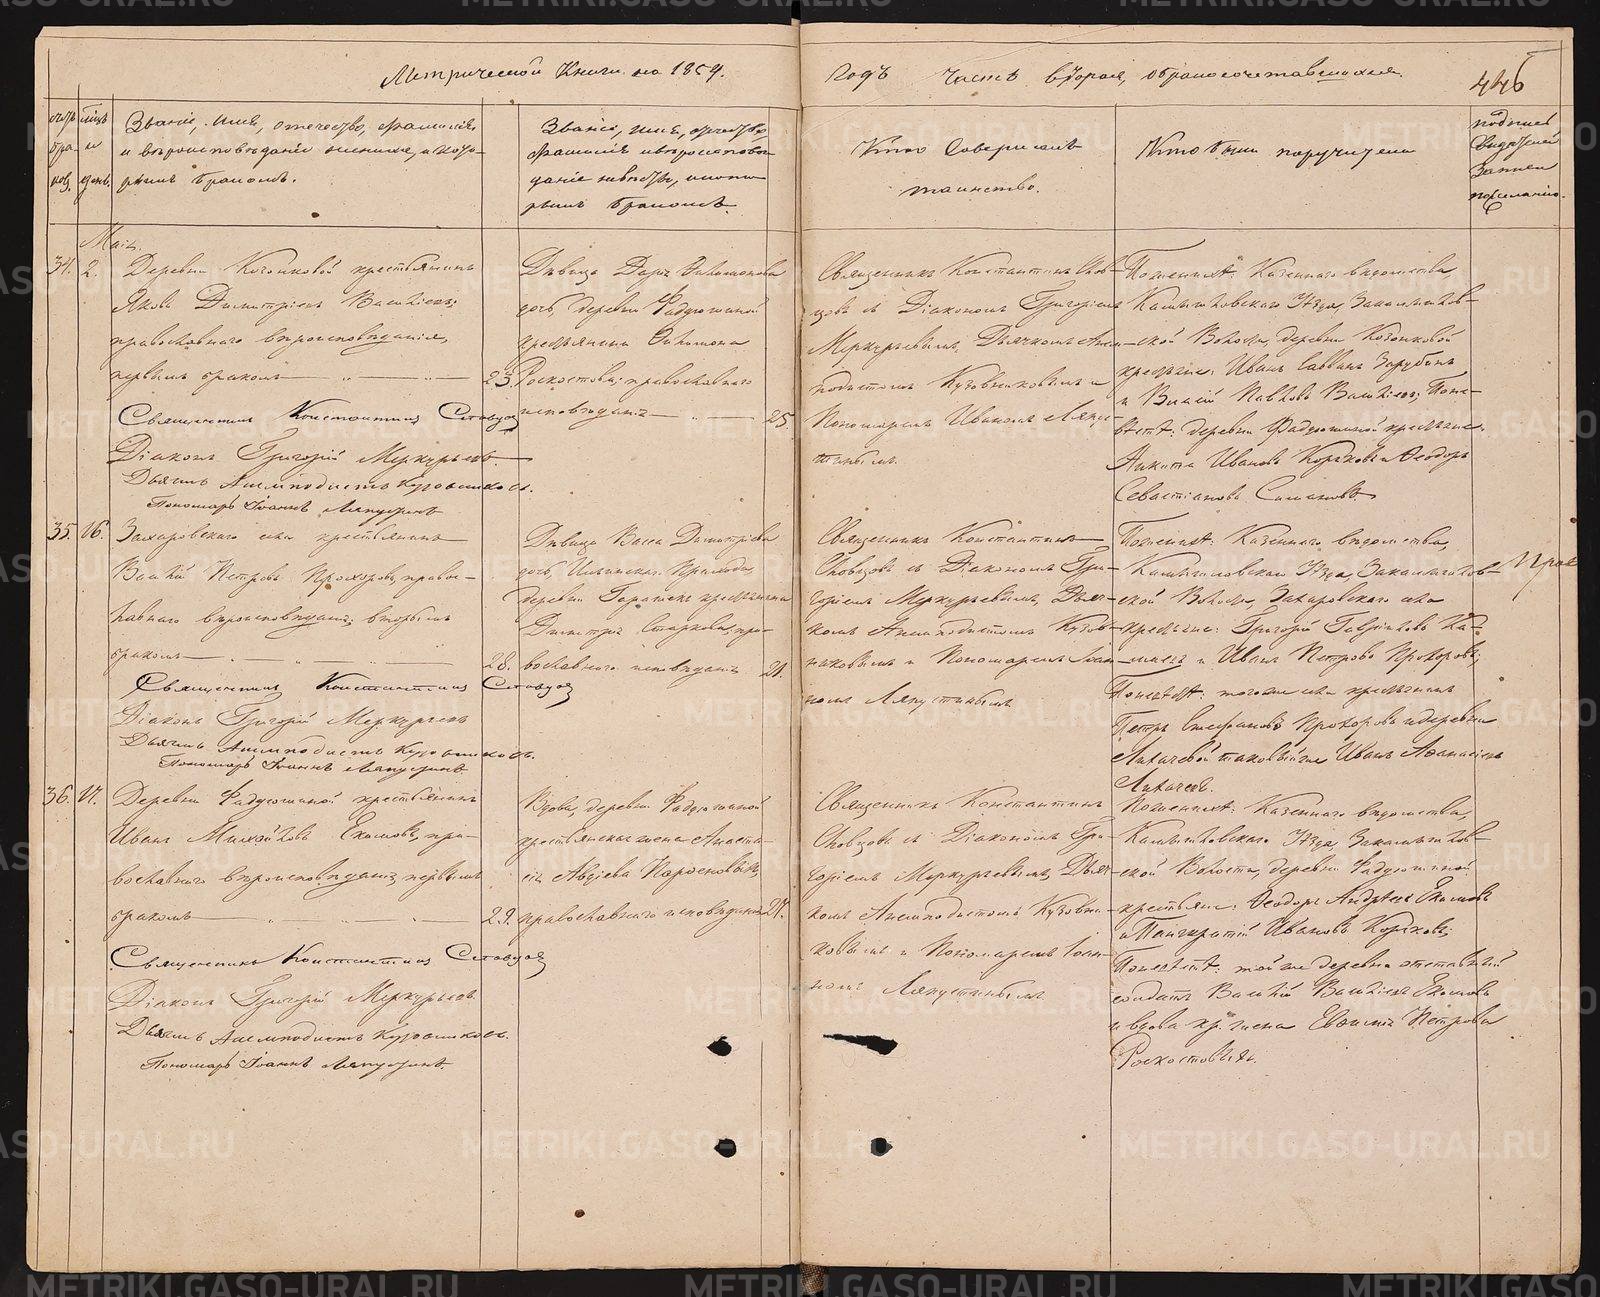 Метрической Книги на 1859.
годъ часть вторая, о бракосочетавшихся.
446
Званіе, имя, отечество, фамилія,
и вѣроисповѣданіе жениха, и кото-
рымъ бракомъ.
Званіе, имя, отчество,
фамилія и вѣроиспове-
даніе невѣсты, и кото-
рымъ бракомъ.
Кто совершалъ
таинство.
Кто были поручители
подпись
свидѣтелей
записи
по желанію.
Маія.
34. 2.
Деревни Казонковой крестьянинъ
Яковъ Димитріевъ Васильевъ,
православнаго вѣроисповѣданія,
первымъ бракомъ
23.
Священникъ Константинъ Словцовъ
Діаконъ Григорій Меркурьевъ.
Дьячекъ Анемподистъ Кузовниковъ.
Пономарь Іоаннъ Ляпустинъ
Дѣвица Дарья Филимонова
дочь, деревни Фадюшиной
крестьянина Филимона
православнаго
исповѣданія
25.
Священникъ Константинъ Слов-
цовъ съ Діакономъ Григоріемъ
Меркурьевымъ, Дьячкомъ Анем-
подистомъ Кузовниковымъ и
Пономаремъ Иваномъ Ляпу-
стинымъ.
По женихѣ: Казеннаго вѣдомства,
Камышловскаго Уѣзда, Закамышлов-
ской Волости, деревни Казонковой
крестьяне: Иванъ Саввинъ Зарубинъ
и Василій Павловъ Васильевъ; По не-
вѣстѣ: деревни Фадюшиной крестьяне:
Никита Ивановъ Коряковъ и Ѳеодоръ
Севастіановъ Симановъ
35. 16.
Захаровскаго села крестьянинъ
Василій Петровъ Прохоровъ, право-
славнаго вѣроисповѣданія, вторымъ
бракомъ
28.
Священникъ Константинъ Словцовъ
Діаконъ Григорій Меркурьевъ
Дьячекъ Анемподистъ Кузовниковъ.
Пономарь Іоаннъ Ляпустинъ
Дѣвица Васса Димитріева
дочь, Ильинскаго Прихода,
деревни крестьянина
Димитрія Старкова, пра-
вославнаго исповѣданія
21.
Священникъ Константинъ
Словцовъ съ Діакономъ Гри-
горіемъ Меркурьевымъ, Дьяч-
комъ Анемподистомъ Кузов-
никовымъ и Пономаремъ Іоан-
номъ Ляпустинымъ
По женихѣ: Казеннаго вѣдомства,
Камышловскаго Уѣзда, Закамышлов-
ской Волости, Захаровскаго села
крестьяне: Григорій Гавриловъ
и Иванъ Петровъ Прохоровъ;
По невѣстѣ: того же села крестьянинъ
Петръ Стефановъ Прохоровъ и деревни
Лихачевой таковый же Иванъ Аѳанасіевъ
Лихачевъ.
36. 17.
Деревни Фадюшиной крестьянинъ
Иванъ Михайловъ Екимовъ, пра-
вославнаго вѣроисповѣданія, первымъ
бракомъ
29.
Священникъ Константинъ Словцовъ
Діаконъ Григорій Меркурьевъ.
Дьячекъ Анемподистъ Кузовниковъ.
Пономарь Іоаннъ Ляпустинъ.
Вдова, деревни Фадюшиной
крестьянская жена Анаста-
сія Авдіева
православнаго исповѣданія
27.
Священникъ Константинъ
Словцовъ съ Діакономъ Гри-
горіемъ Меркурьевымъ, Дьяч-
комъ Анемподистомъ Кузовни-
ковымъ и Пономаремъ Іоан-
номъ Ляпустинымъ
По женихѣ: Казеннаго вѣдомства,
Камышловскаго Уѣзда, Закамышлов-
ской Волости, деревни Фадюшиной
крестьяне: Ѳеодоръ Андреевъ Екимовъ
и Панкратій Ивановъ Коряковъ;
По невѣстѣ: той же деревни отставный
солдатъ Василій Васильевъ Екимовъ
и вдова кр. жена Евѳимія Петрова
METRIKI.GASO-URAL.RU